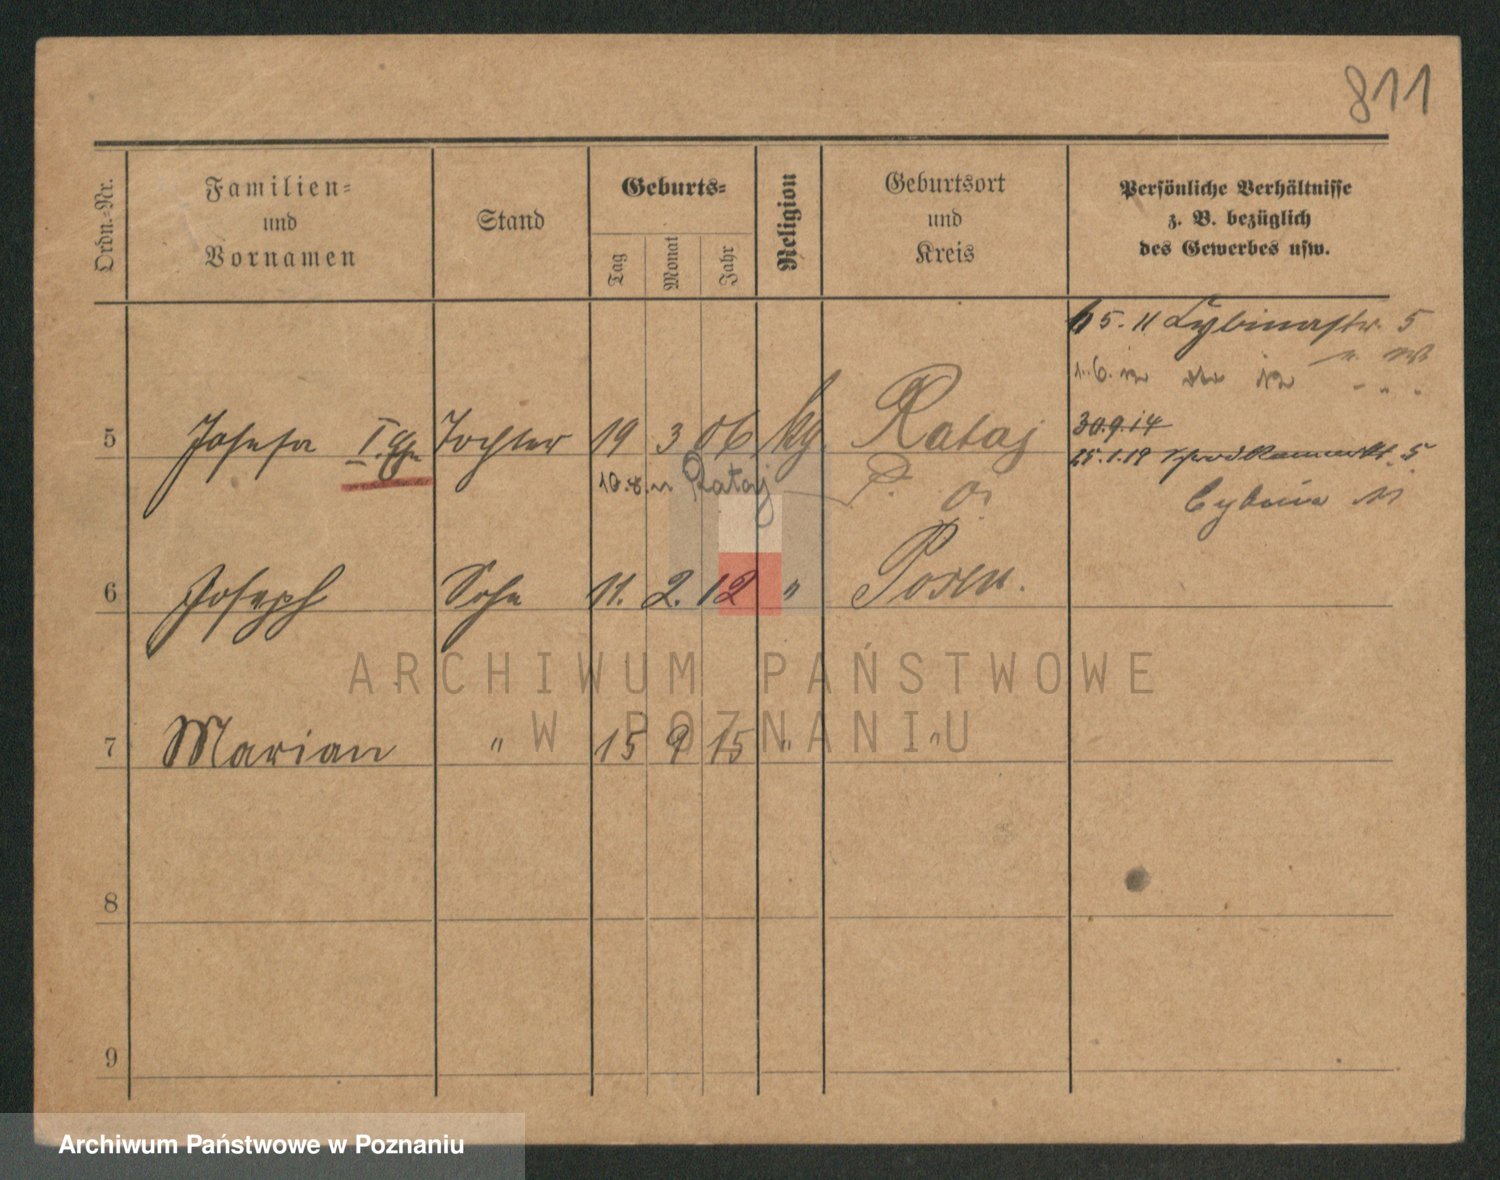 811
Ordn.-Nr.
Familien-
und
Vornamen
Stand
Geburts-
Tag
Monat
Jahr
Religion
Geburtsort
und
Kreis
Persönliche Verhältnisse
z. B. bezüglich
des Gewerbes usw.
5. 11 Cybinastr. 5
5 Josefa I. Ehe Tochter 19 3 06 kg. Rataj
30.9.14
25.1.19 5
10.8. Rataj P. O.
Cybina 11
6 Joseph Sohn 11. 2. 12 " Posen.
ARCHIWUM PAŃSTWOWE
W POZNANIU
7 Marian " 15 9 15 " "
8
9
Archiwum Państwowe w Poznaniu